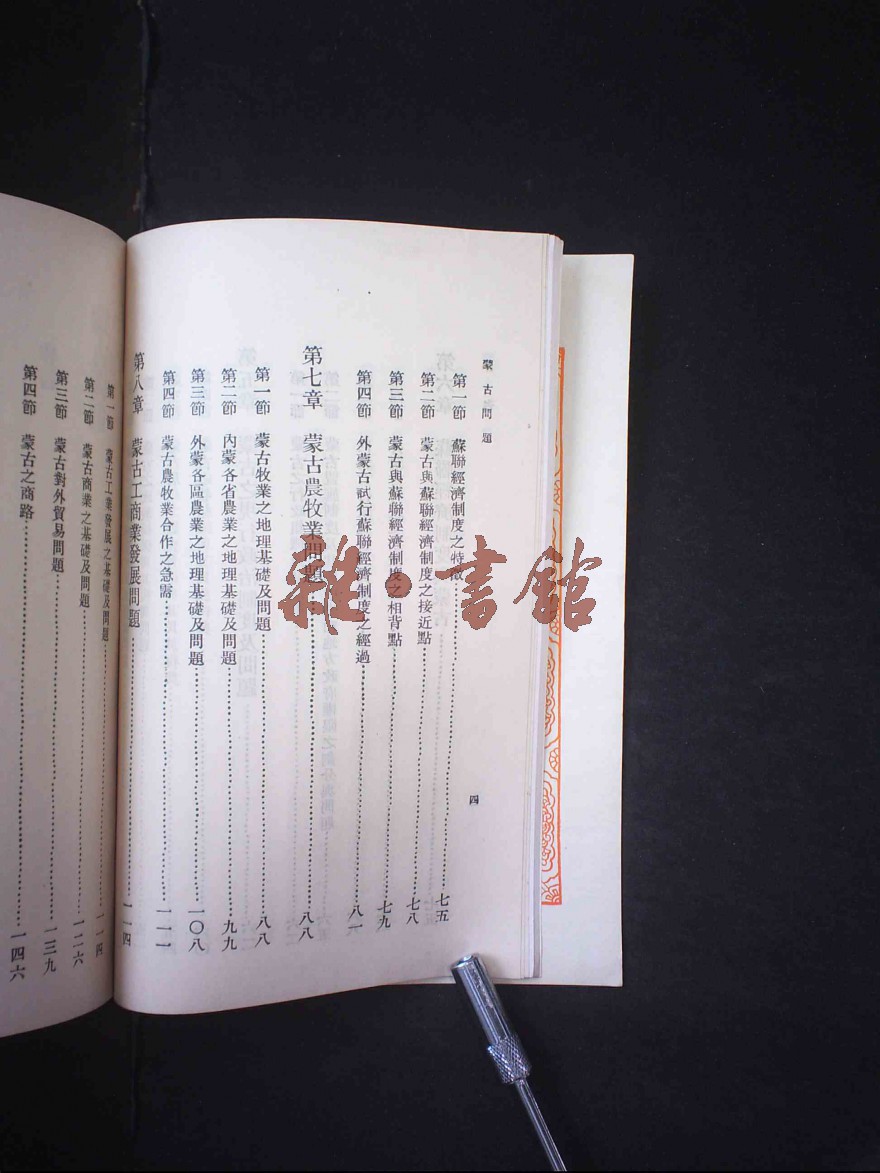 蒙古問題
四
第一節 蘇聯經濟制度之特徵 七五
第二節 蒙古與蘇聯經濟制度之接近點 七八
第三節 蒙古與蘇聯經濟制度之相背點 七九
第四節 外蒙古試行蘇聯經濟制度之經過 八一
第七章 蒙古農牧業問題 八八
第一節 蒙古牧業之地理基礎及問題 八八
第二節 內蒙各省農業之地理基礎及問題 九九
第三節 外蒙各區農業之地理基礎及問題 一〇八
第四節 蒙古農牧業合作之急需 一一一
第八章 蒙古工商業發展問題 一一四
第一節 蒙古工業發展之基礎及問題 一一四
第二節 蒙古商業之基礎及問題 一二六
第三節 蒙古對外貿易問題 一三九
第四節 蒙古之商路 一四六
雜·書館